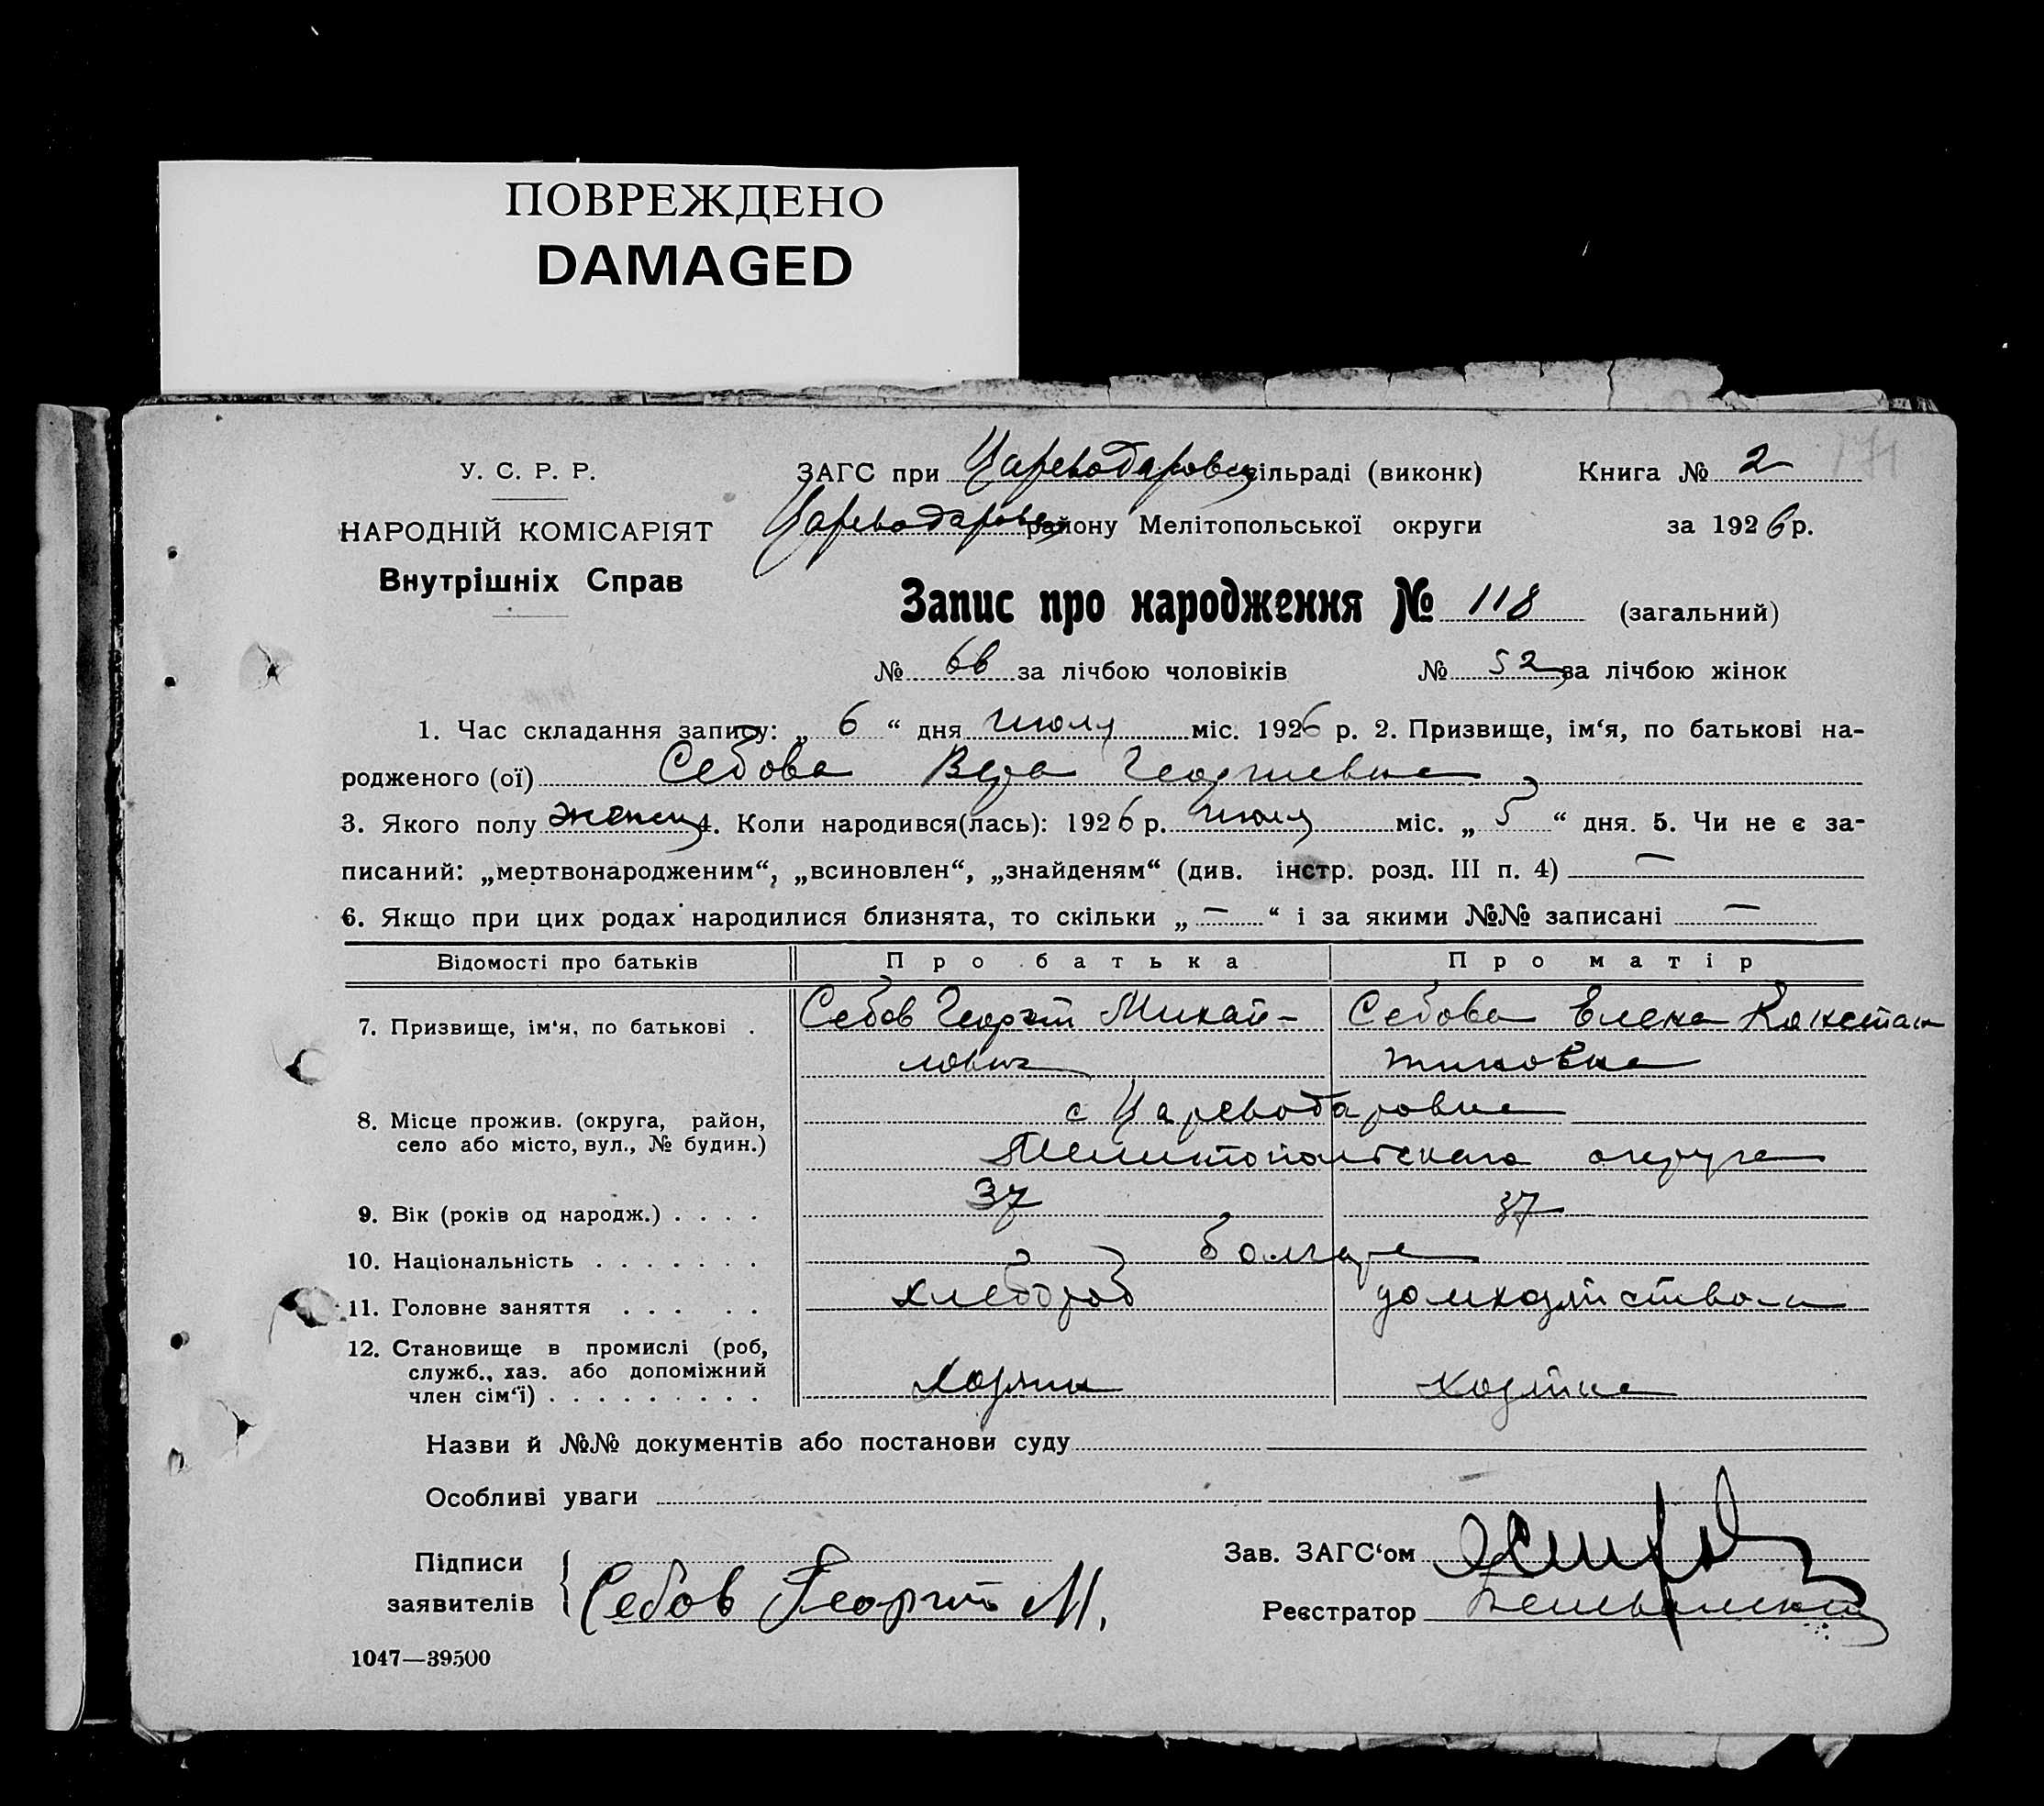 ПОВРЕЖДЕНО
DAMAGED
У. С. Р. Р.
НАРОДНІЙ КОМІСАРІЯТ
Внутрішніх Справ
ЗАГС при Цареводаровск сільраді (виконк) Книга № 2 171
Цареводаровск району Мелітопольської округи за 1926 р.
Запис про народження № 118 (загальний)
№ 66 за лічбою чоловіків № 52 за лічбою жінок
1. Час складання запису: „ 6 “ дня июля міс. 1926 р. 2. Призвище, ім‘я, по батькові на-
родженого (ої) Себова Вера Георгиевна
3. Якого полу женск 4. Коли народився(лась): 1926 р. июля міс. „ 5 “ дня. 5. Чи не є за-
писаний: „мертвонародженим“, „всиновлен“, „знайденям“ (див. інстр. розд. III п. 4) —
6. Якщо при цих родах народилися близнята, то скільки „ — “ і за якими №№ записані —
Відомості про батьків Про батька Про матір
7. Призвище, ім‘я, по батькові . Себов Георгий Михай- Себова Елена Констан
лович тиновна
8. Місце прожив. (округа, район, с Цареводаровка
село або місто, вул., № будин.) Мелитопольского округа
9. Вік (років од народж.) . . . . 37 37
10. Національність . . . . . . . болгаре
11. Головне заняття . . . . . хлебороб домхозяйством
12. Становище в промислі (роб,
служб., хаз. або допоміжний
член сім‘ї) . . . . . . . . . Хозяин хозяйка
Назви й №№ документів або постанови суду
Особливі уваги
Підписи
заявителів
Себов Георгий М.
Зав. ЗАГС‘ом
Реєстратор
1047—39500